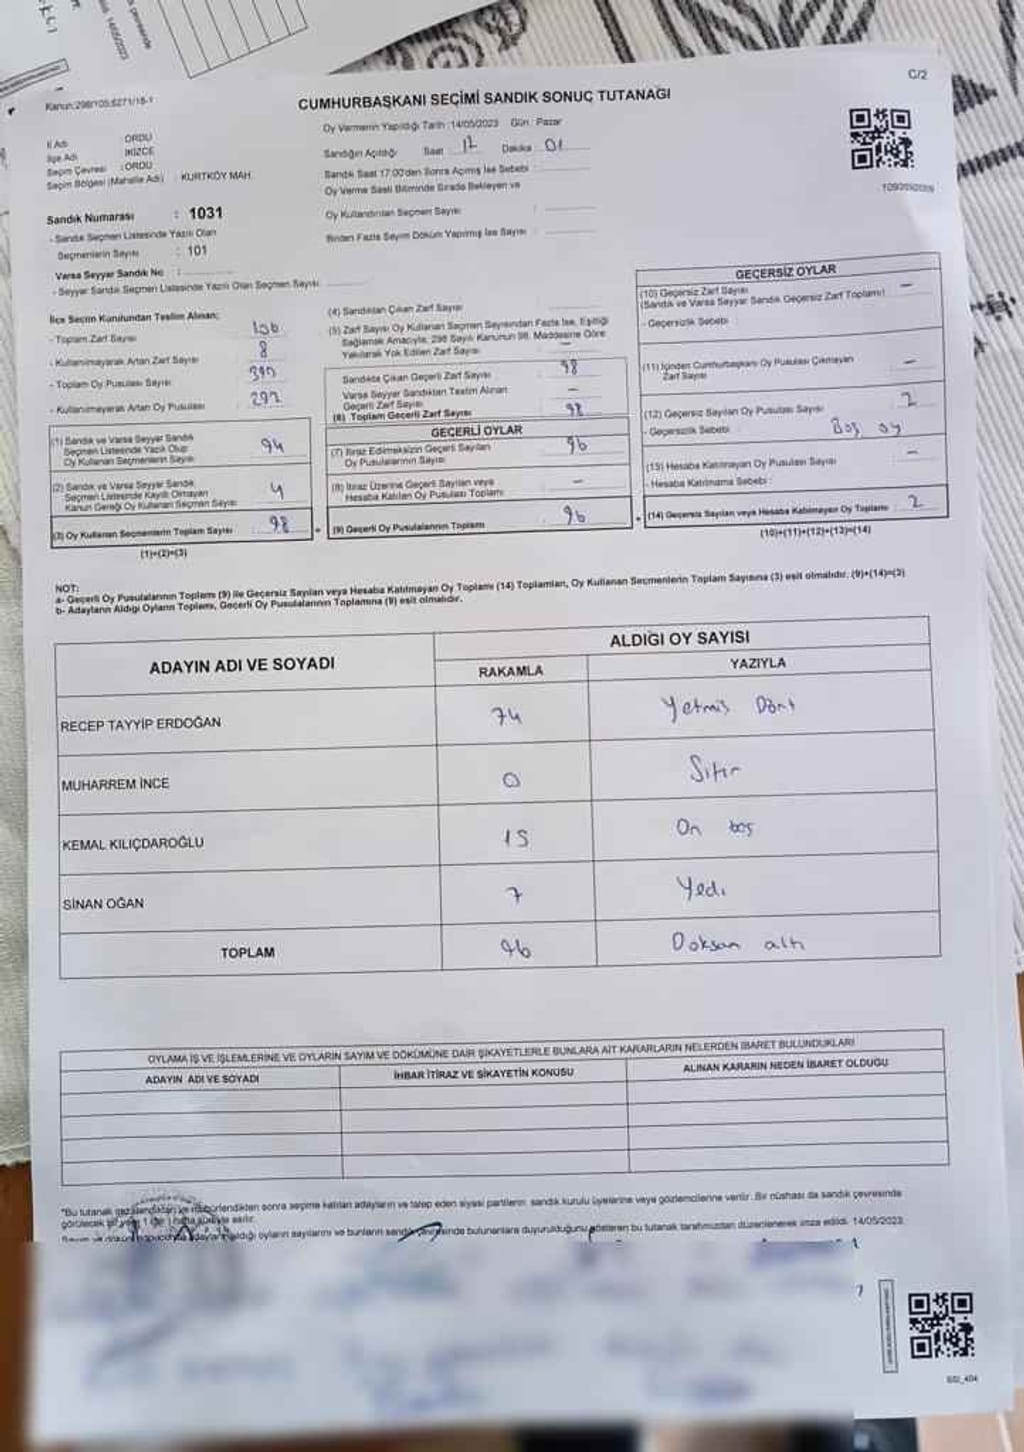 C/2
Kanun:298/105;6271/18-1
CUMHURBAŞKANI SEÇİMİ SANDIK SONUÇ TUTANAĞI
İl Adı : ORDU
İlçe Adı : İKİZCE
Seçim Çevresi : ORDU
Seçim Bölgesi (Mahalle Adı) : KURTKÖY MAH.
Oy Vermenin Yapıldığı Tarih :14/05/2023 Gün : Pazar
Sandığın Açıldığı Saat 17 Dakika 01
Sandık Saat 17:00'den Sonra Açılmış İse Sebebi :
Oy Verme Saati Bitiminde Sırada Bekleyen ve
Oy Kullandırılan Seçmen Sayısı :
Birden Fazla Sayım Döküm Yapılmış İse Sayısı :
Sandık Numarası : 1031
- Sandık Seçmen Listesinde Yazılı Olan
Seçmenlerin Sayısı : 101
Varsa Seyyar Sandık No :
- Seyyar Sandık Seçmen Listesinde Yazılı Olan Seçmen Sayısı:
İlçe Seçim Kurulundan Teslim Alınan;
- Toplam Zarf Sayısı 106
- Kullanılmayarak Artan Zarf Sayısı 8
- Toplam Oy Pusulası Sayısı 390
- Kullanılmayarak Artan Oy Pusulası 292
(1) Sandık ve Varsa Seyyar Sandık
Seçmen Listesinde Yazılı Olup
Oy Kullanan Seçmenlerin Sayısı 94
(2) Sandık ve Varsa Seyyar Sandık
Seçmen Listesinde Kayıtlı Olmayan
Kanun Gereği Oy Kullanan Seçmen Sayısı 4
(3) Oy Kullanan Seçmenlerin Toplam Sayısı 98
(1)+(2)=(3)
(4) Sandıktan Çıkan Zarf Sayısı
(5) Zarf Sayısı Oy Kullanan Seçmen Sayısından Fazla İse, Eşitliği
Sağlamak Amacıyla, 298 Sayılı Kanunun 98. Maddesine Göre
Yakılarak Yok Edilen Zarf Sayısı
Sandıkta Çıkan Geçerli Zarf Sayısı 98
Varsa Seyyar Sandıktan Teslim Alınan
Geçerli Zarf Sayısı –
(6) Toplam Geçerli Zarf Sayısı 98
GEÇERLİ OYLAR
(7) İtiraz Edilmeksizin Geçerli Sayılan
Oy Pusulalarının Sayısı 96
(8) İtiraz Üzerine Geçerli Sayılan veya
Hesaba Katılan Oy Pusulası Toplamı –
(9) Geçerli Oy Pusulalarının Toplamı 96
GEÇERSİZ OYLAR
(10) Geçersiz Zarf Sayısı
(Sandık ve Varsa Seyyar Sandık Geçersiz Zarf Toplamı) –
- Geçersizlik Sebebi :
(11) İçinden Cumhurbaşkanı Oy Pusulası Çıkmayan
Zarf Sayısı –
(12) Geçersiz Sayılan Oy Pusulası Sayısı 2
- Geçersizlik Sebebi : Boş oy
(13) Hesaba Katılmayan Oy Pusulası Sayısı –
- Hesaba Katılmama Sebebi :
(14) Geçersiz Sayılan veya Hesaba Katılmayan Oy Toplamı 2
(10)+(11)+(12)+(13)=(14)
NOT:
a- Geçerli Oy Pusulalarının Toplamı (9) ile Geçersiz Sayılan veya Hesaba Katılmayan Oy Toplamı (14) Toplamları, Oy Kullanan Seçmenlerin Toplam Sayısına (3) eşit olmalıdır. (9)+(14)=(3)
b- Adayların Aldığı Oyların Toplamı, Geçerli Oy Pusulalarının Toplamına (9) eşit olmalıdır.
ADAYIN ADI VE SOYADI
ALDIĞI OY SAYISI
RAKAMLA YAZIYLA
RECEP TAYYİP ERDOĞAN 74 Yetmiş Dört
MUHARREM İNCE 0 Sıfır
KEMAL KILIÇDAROĞLU 15 On beş
SİNAN OĞAN 7 Yedi
TOPLAM 96 Doksan altı
OYLAMA İŞ VE İŞLEMLERİNE VE OYLARIN SAYIM VE DÖKÜMÜNE DAİR ŞİKAYETLERLE BUNLARA AİT KARARLARIN NELERDEN İBARET BULUNDUKLARI
ADAYIN ADI VE SOYADI İHBAR İTİRAZ VE ŞİKAYETİN KONUSU ALINAN KARARIN NEDEN İBARET OLDUĞU
sonra seçime katılan adayların ve talep eden siyasi partilerin sandık kurulu üyelerine veya gözlemcilerine verilir. Bir nüshası da sandık çevresinde
oyların sayılarını ve bunların bulunanlara duyurulduğunu gösteren bu tutanak tarafımızdan düzenlenerek imza edildi. 14/05/2023
SSI_404